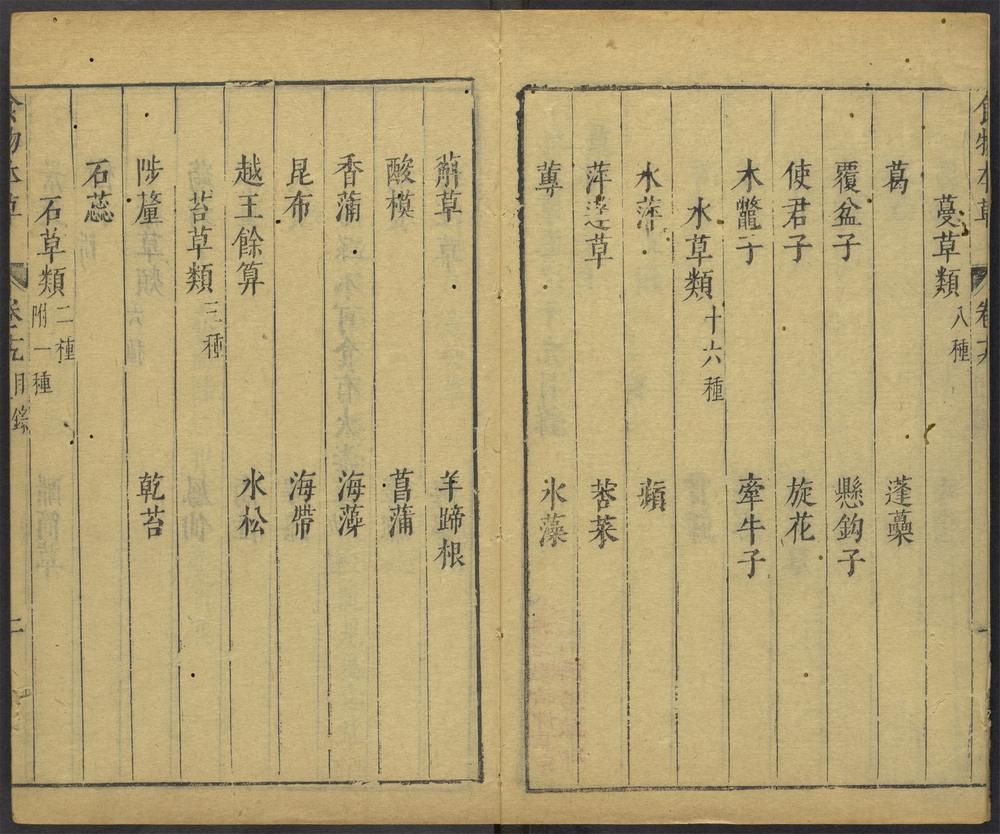 食物本草 卷
蔓草類 八種
葛 蓬蘽
覆盆子 懸鈎子
使君子 旋花
木鼈子 牽牛子
水草類 十六種
水萍 蘋
萍蓬草 荇菜
蓴 水藻
蔛草 羊蹄根
酸模 菖蒲
香蒲 海藻
昆布 海帶
越王餘算 水松
苔草類 三種
陟釐 乾苔
石蕊
石草類 二種 附一種
食物本草 卷 目錄 二